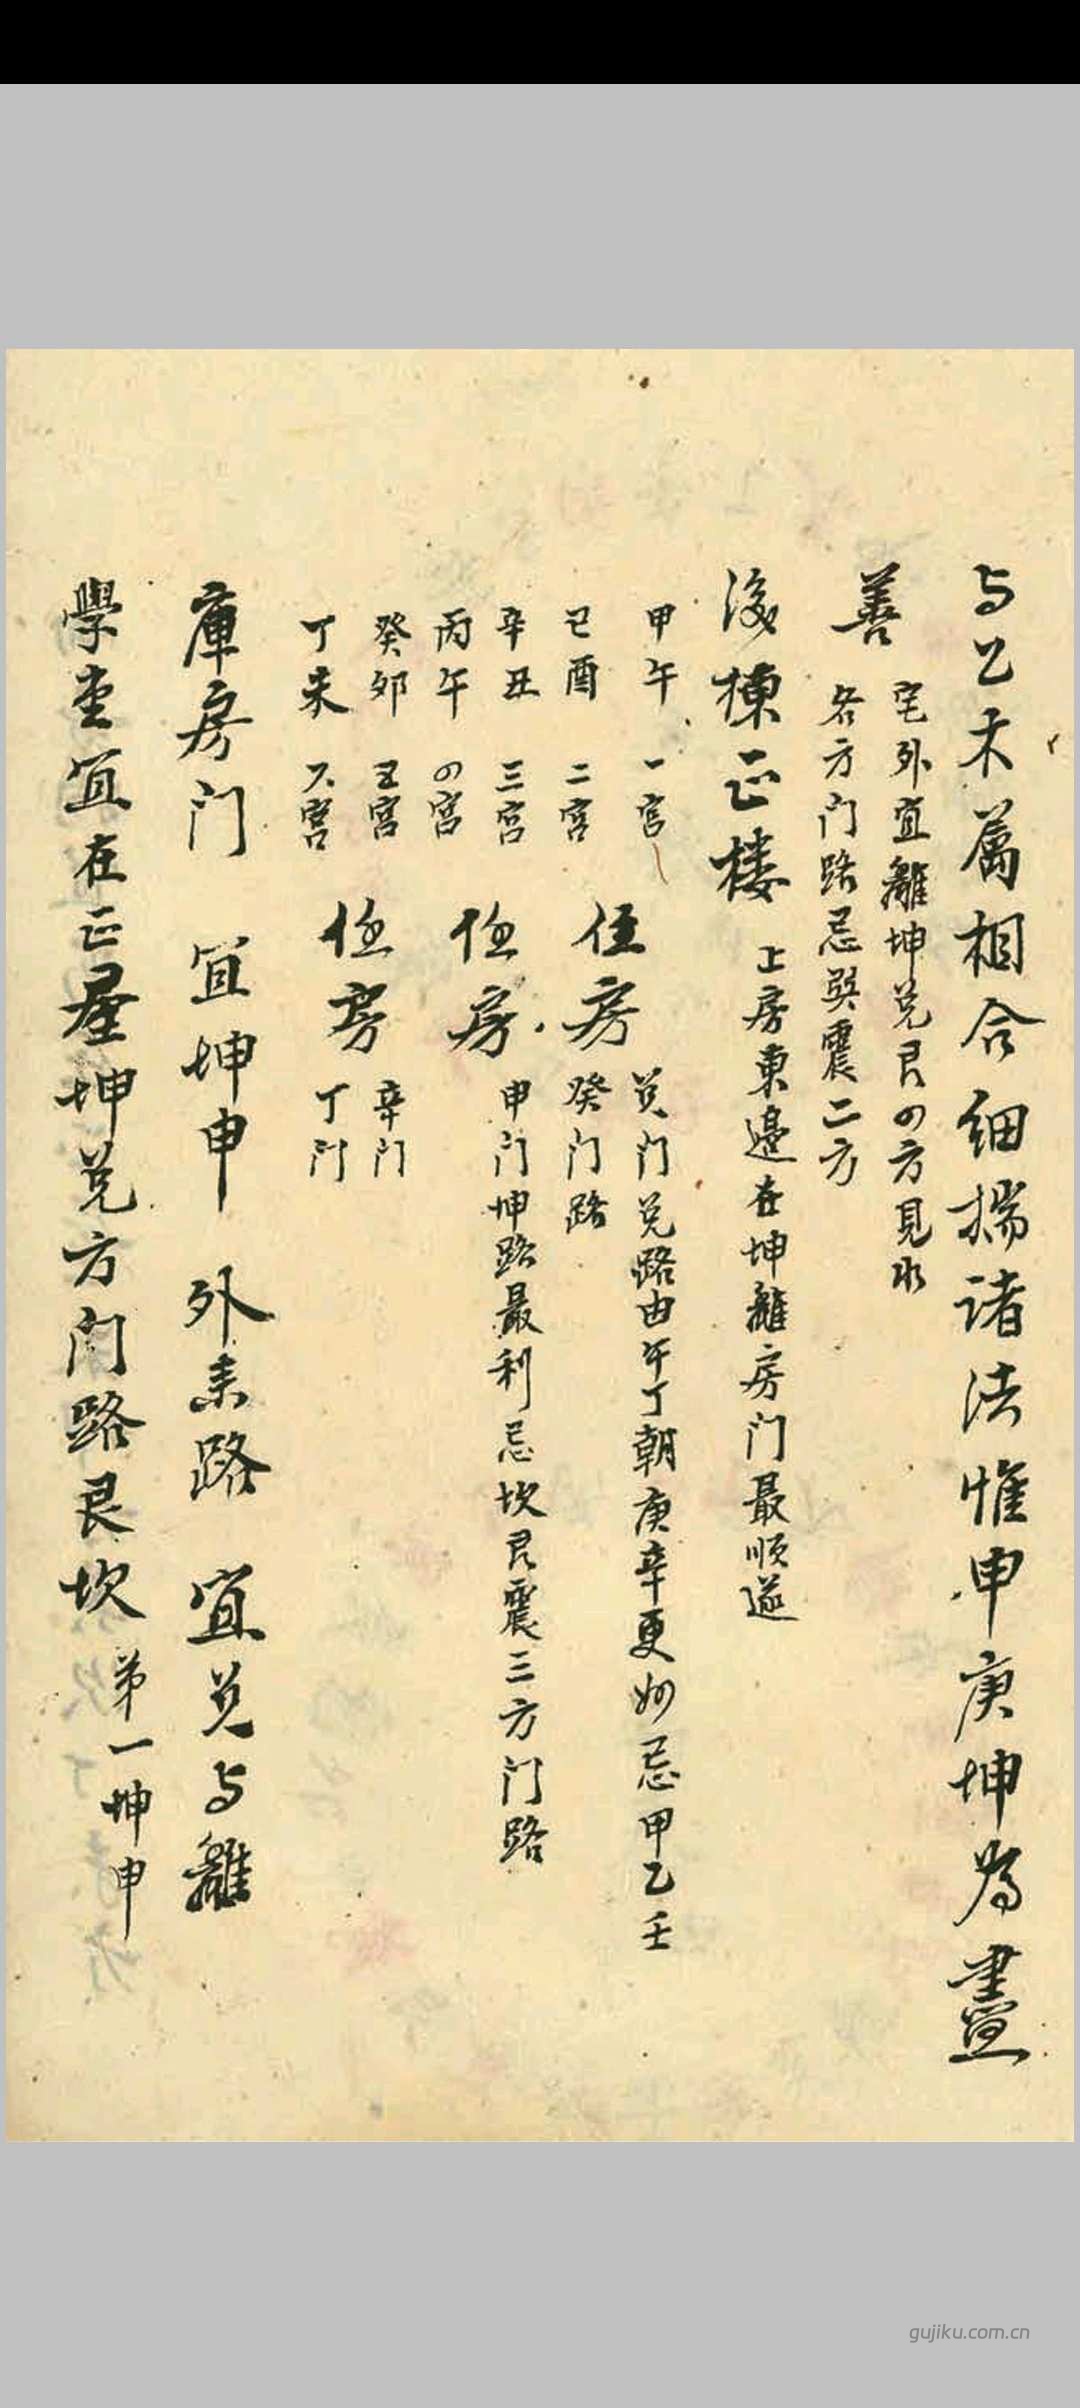 与乙木属相合细揣诸法惟申庚坤为尽
善
宅外宜離坤兑艮四方見水
各方门路忌巽震二方
後棟正楼
上房東邊在坤離房门最順遂
甲午 一宫
己酉 二宫
辛丑 三宫
丙午 四宫
癸卯 五宫
丁未 六宫
住房
兑门兑路由午丁朝庚辛更妙忌甲乙壬
癸门路
住房
申门坤路最利忌坎艮震三方门路
住房
辛门
丁门
庫房门 宜坤申 外来路 宜兑与離
學堂宜在正屋坤兑方门路艮坎
第一坤申
gujiku.com.cn